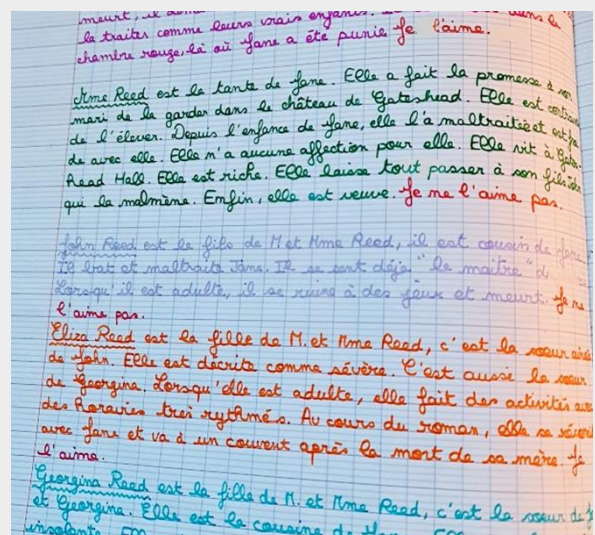 meurt, il
la traiter comme leurs vrais enfants. dans la
chambre rouge, là où Jane a été punie Je l'aime.
Mme Reed est la tante de Jane. Elle a fait la promesse à son
mari de la garder dans le château de Gateshead. Elle est
de l'élever. Depuis l'enfance de Jane, elle l'a maltraitée et est
de avec elle. Elle n'a aucune affection pour elle. Elle vit à Gates-
Head Hall. Elle est riche. Elle laisse tout passer à son fils
qui la malmène. Enfin, elle est veuve. Je ne l'aime pas.
John Reed est le fils de M et Mme Reed, il est cousin de Jane.
Il bat et maltraite Jane. Il se sent déjà "le maître" d
Lorsqu'il est adulte, il se ruine à des jeux et meurt. Je ne
l'aime pas.
Eliza Reed est la fille de M. et Mme Reed, c'est la soeur ainée
de John. Elle est décrite comme sévère. C'est aussi la soeur
de Georgina. Lorsqu'elle est adulte, elle fait des activités avec
des horaires très rythmés. Au cours du roman, elle se
avec Jane et va à un couvent après la mort de sa mère. Je
l'aime.
Georgina Reed est la fille de M. et Mme Reed, c'est la soeur de J
et Georgina. Elle est la cousine de
insolente.